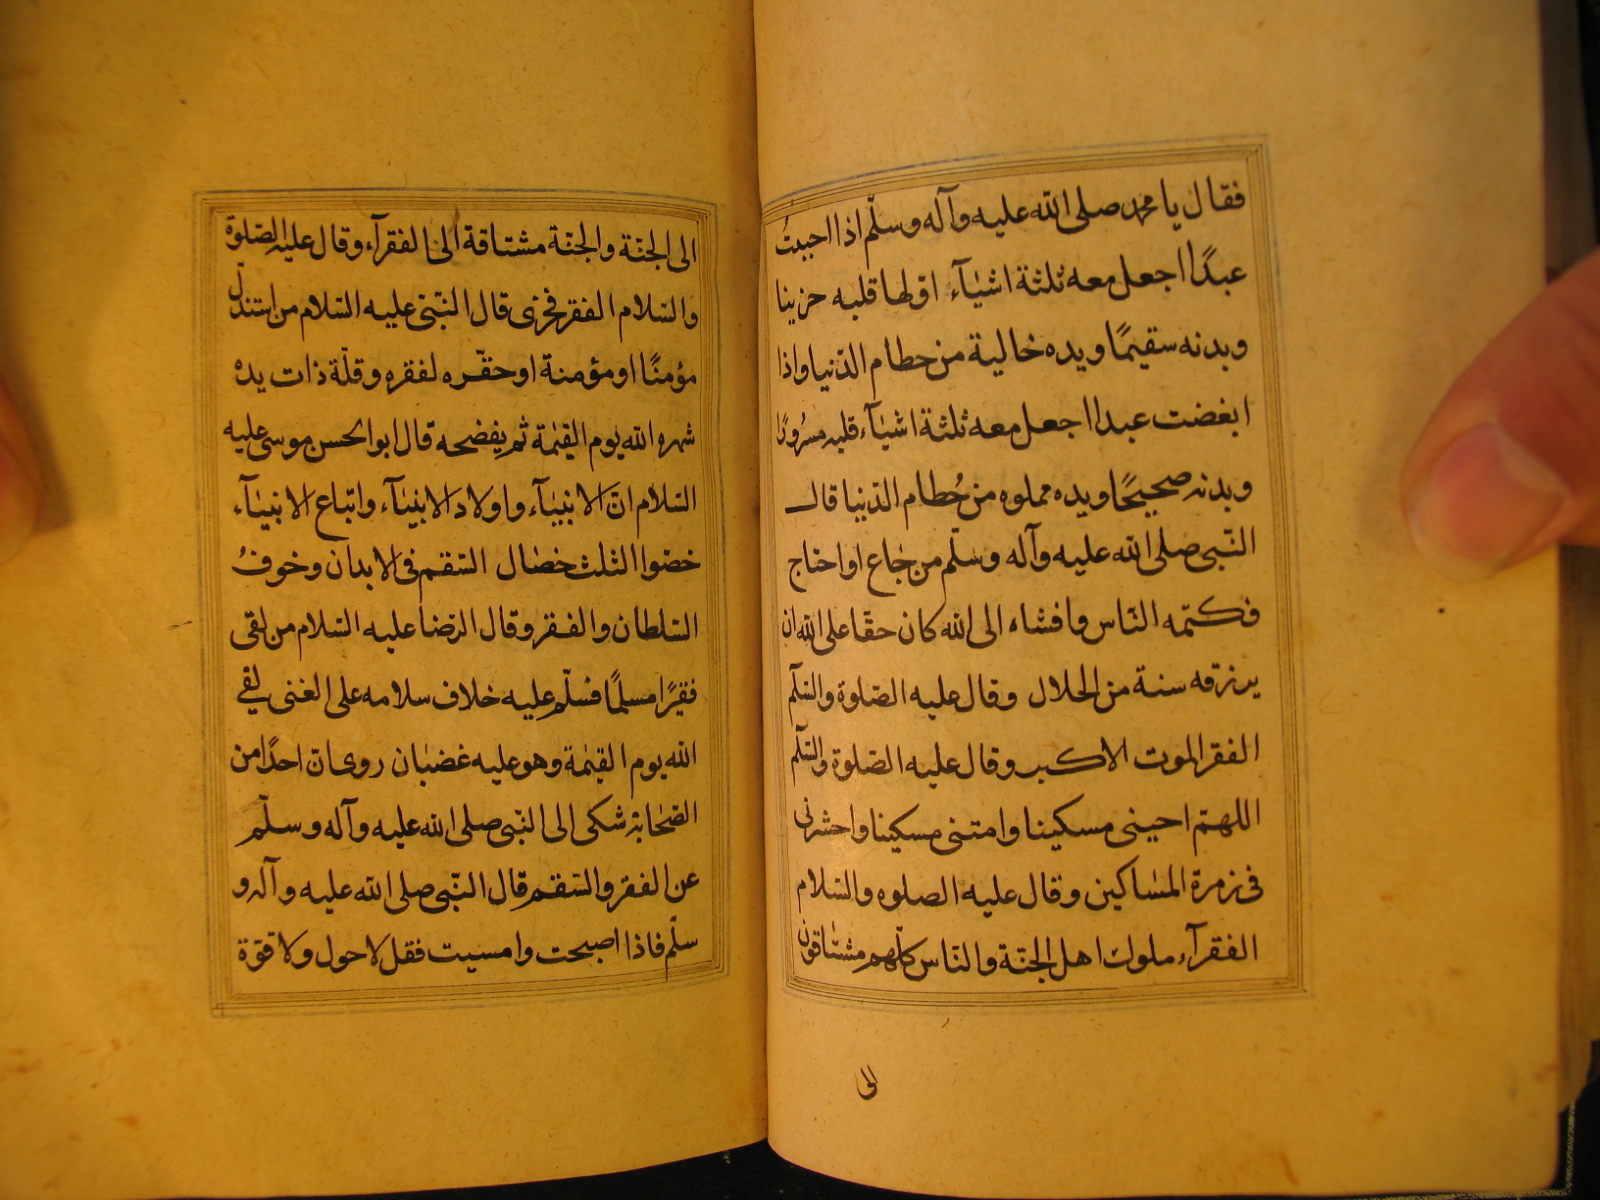 فقال يا محمد صلى الله عليه وآله وسلّم اذا احببتُ
عبدًا اجعل معه ثلثة اشيآء اوّلها قلبه حزينا
وبدنه سقيمًا ويده خالية من حطام الدّنيا واذا
ابغضت عبدا اجعل معه ثلثة اشيآء قلبه مسرُورًا
وبدنه صحيحًا ويده مملوه من حُطام الدّنيا قال
النّبى صلى الله عليه وآله وسلّم من جاع او احتاج
فكتمه النّاس وافشاه الى الله كان حقّا على الله ان
يرزقه سنة من الحلال وقال عليه الصّلوة والسّلم
الفقر الموت الاكبر وقال عليه الصّلوة والسّلم
اللهمّ احينى مسكينا وامتنى مسكينا واحشرنى
فى زمرة المساكين وقال عليه الصلوه والسّلام
الفقرآء ملوك اهل الجنّة والنّاس كلّهم مشتاقون
الى
الى الجنّة والجنّة مشتاقة الى الفقرآء وقال عليه الصّلوة
والسّلام الفقر فخرى قال النّبىّ عليه السّلام من استذلّ
مؤمنًا او مؤمنة او حقّره لفقره وقلّة ذات يده
شهره الله يوم القيٰمة ثم يفضحه قال ابو الحسن موسى عليه
السّلام انّ الانبيآء واولاد الانبيآء واتباع الانبيآء
خصّوا الثلث خصال السّقم فى الابدان وخوفُ
السّلطان والفقر وقال الرّضا عليه السّلام من لقى
فقيرًا مسلمًا فسلّم عليه خلاف سلامه على الغنى لقى
الله يوم القيٰمة وهو عليه غضبان روى انّ احدًا من
الصّحابة شكى الى النّبى صلى الله عليه وآله وسلّم
عن الفقر والسّقم قال النّبى صلى الله عليه وآله و
سلّم فاذا اصبحت وامسيت فقل لا حول ولا قوّة